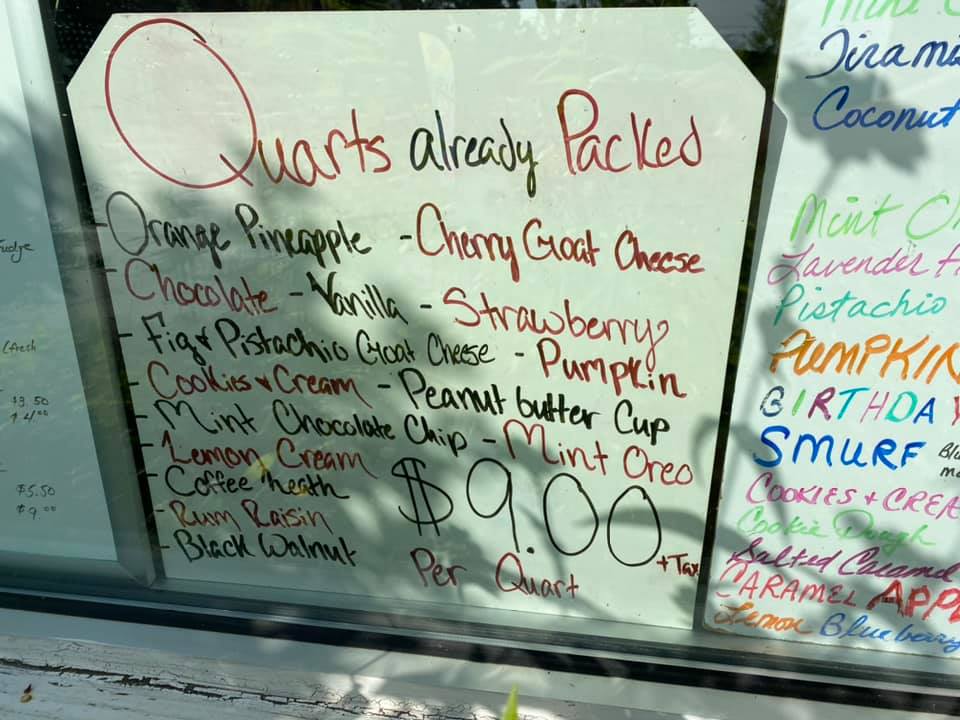 Quarts already Packed
- Orange Pineapple - Cherry Goat Cheese
- Chocolate - Vanilla - Strawberry
- Fig & Pistachio Goat Cheese - Pumpkin
- Cookies & Cream - Peanut butter Cup
- Mint Chocolate Chip - Mint Oreo
- Lemon Cream
- Coffee heath
- Rum Raisin
- Black Walnut
$9.00 + Tax
Per Quart
Coconut
Mint
Lavender
Pistachio
PUMPKIN
BIRTHDAY
SMURF
COOKIES + CREA
Cookie Dough
Salted Caramel
CARAMEL APPL
Lemon Blueberry
$3.50
$4.00
$5.50
$9.00